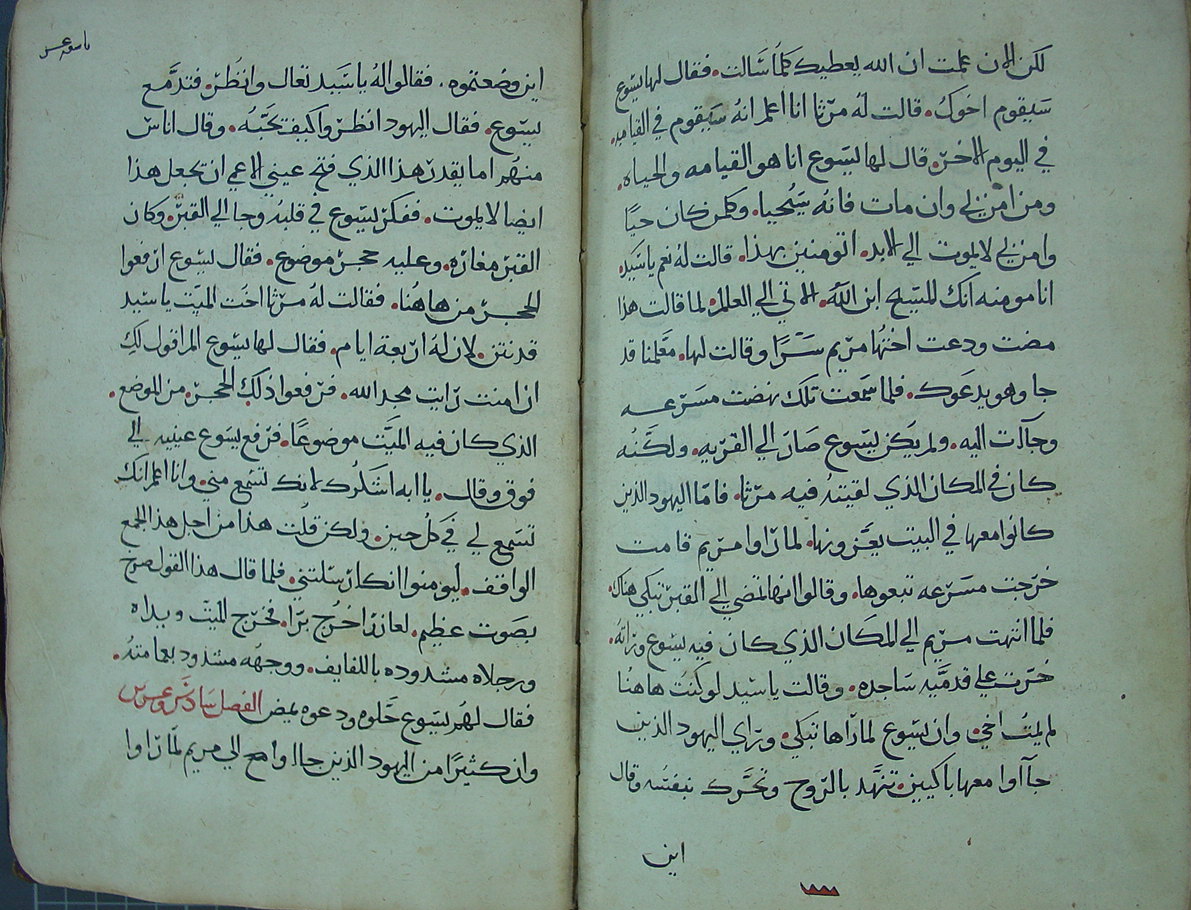 لكن الان علمت ان الله يعطيك كلما سالت. فقال لها يسوع
سيقوم اخوك. قالت له مرثا انا اعلم انه سيقوم في القيامه.
في اليوم الاخر. قال لها يسوع انا هو القيامه والحياه.
ومن امن بي وان مات فانه سيحيا. وكلمن كان حيا
وامن بي لا يموت الي الابد. اتومنين بهذا. قالت له نعم ياسيد.
انا مومنه انك المسيح ابن الله. الاتي الي العالم. لما قالت هذا
مضت ودعت اختها مريم سرا وقالت لها. معلمنا قد
جا وهو يدعوك. فلما سمعت تلك نهضت مسرعه
وجاات اليه. ولم يكن يسوع صار الي القريه. ولكنه
كان في المكان الذي لقيته فيه مرثا. فاما اليهود الذين
كانوا معها في البيت يعزونها. لما راوا مريم قامت
خرجت مسرعه تبعوها. وقالوا انها تمضي الي القبر تبكي هناك.
فلما انتهت مريم الي المكان الذي كان فيه يسوع وراته.
خرت علي قدميه ساجده. وقالت ياسيد لو كنت هاهنا
لم يمت اخي. وان يسوع لما راها تبكي. وراي اليهود الذين
جآاوا معها باكيين. تنهد بالروح وتحرك بنفسه وقال
اين
اين وضعتموه. فقالوا له ياسيد تعال وانظر. فتدمع
يسوع. فقال اليهود انظروا كيف يحبه. وقال اناس
منهم اما يقدر هذا الذي فتح عيني الاعمي ان يجعل هذا
ايضا لا يموت. ففكر يسوع في قلبه وجا الي القبر. وكان
القبر مغاره. وعليه حجر موضوع. فقال يسوع ارفعوا
الحجر من هاهنا. فقالت له مرثا اخت الميت ياسيد
قد نتن. لان له اربعة ايام. فقال لها يسوع الم اقول لك
ان امنت رايت مجد الله. فرفعوا ذلك الحجر. من الموضع.
الذي كان فيه الميت موضوعا. فرفع يسوع عينيه الي
فوق وقال. يا ابه اشكرك لانك تسمع مني. وانا اعلم انك
تسمع لي في كل حين. ولكن قلت هذا من اجل هذا الجمع
الواقف. ليومنوا انك ارسلتني. فلما قال هذا القول صرخ
بصوت عظيم. لعازر اخرج برا. فخرج الميت ويداه
ورجلاه مشدوده باللفايف. ووجهه مشدود بعمامته.
فقال لهم يسوع حلوه ودعوه يمض الفصل سادس وعشرين
وان كثيرا من اليهود الذين جااوا مع الي مريم لما راوا